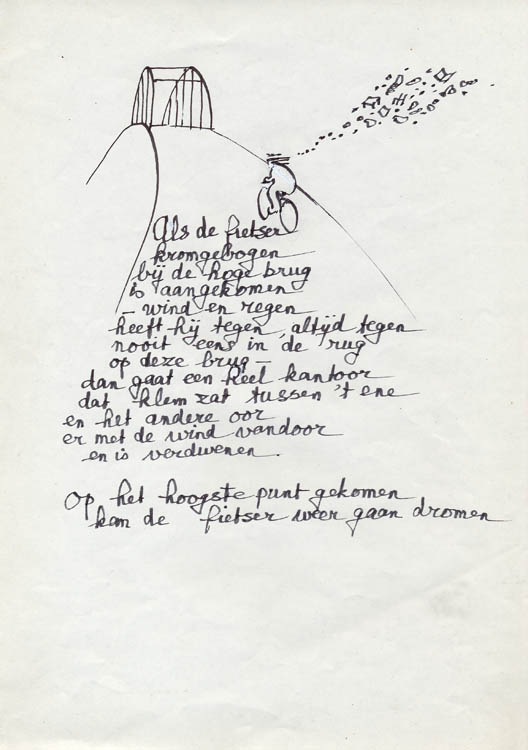 Als de fietser
kromgebogen
bij de hoge brug
is aangekomen
– wind en regen
heeft hij tegen, altijd tegen
nooit eens in de rug
op deze brug –
dan gaat een heel kantoor
dat klem zat tussen 't ene
en het andere oor
er met de wind vandoor
en is verdwenen.
Op het hoogste punt gekomen
kan de fietser weer gaan dromen